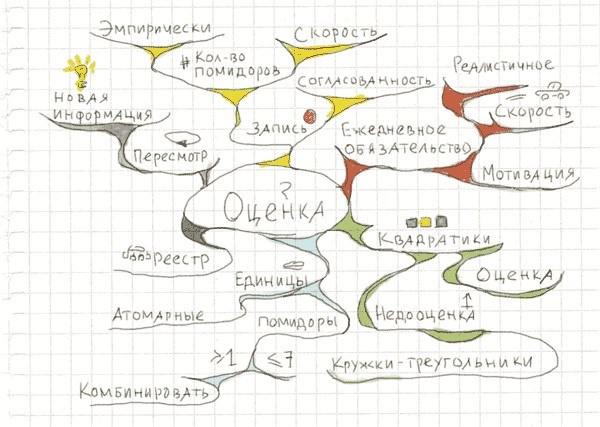 Эмпирически
Скорость
# Кол-во
помидоров
Согласованность
Реалистичное
Новая
информация
Запись
Ежедневное
обязательство
Скорость
Пересмотр
Мотивация
?
Оценка
Квадратики
Реестр
Единицы
Оценка
Атомарные
Помидоры
Недооценка
≥1
≤7
Кружки-треугольники
Комбинировать